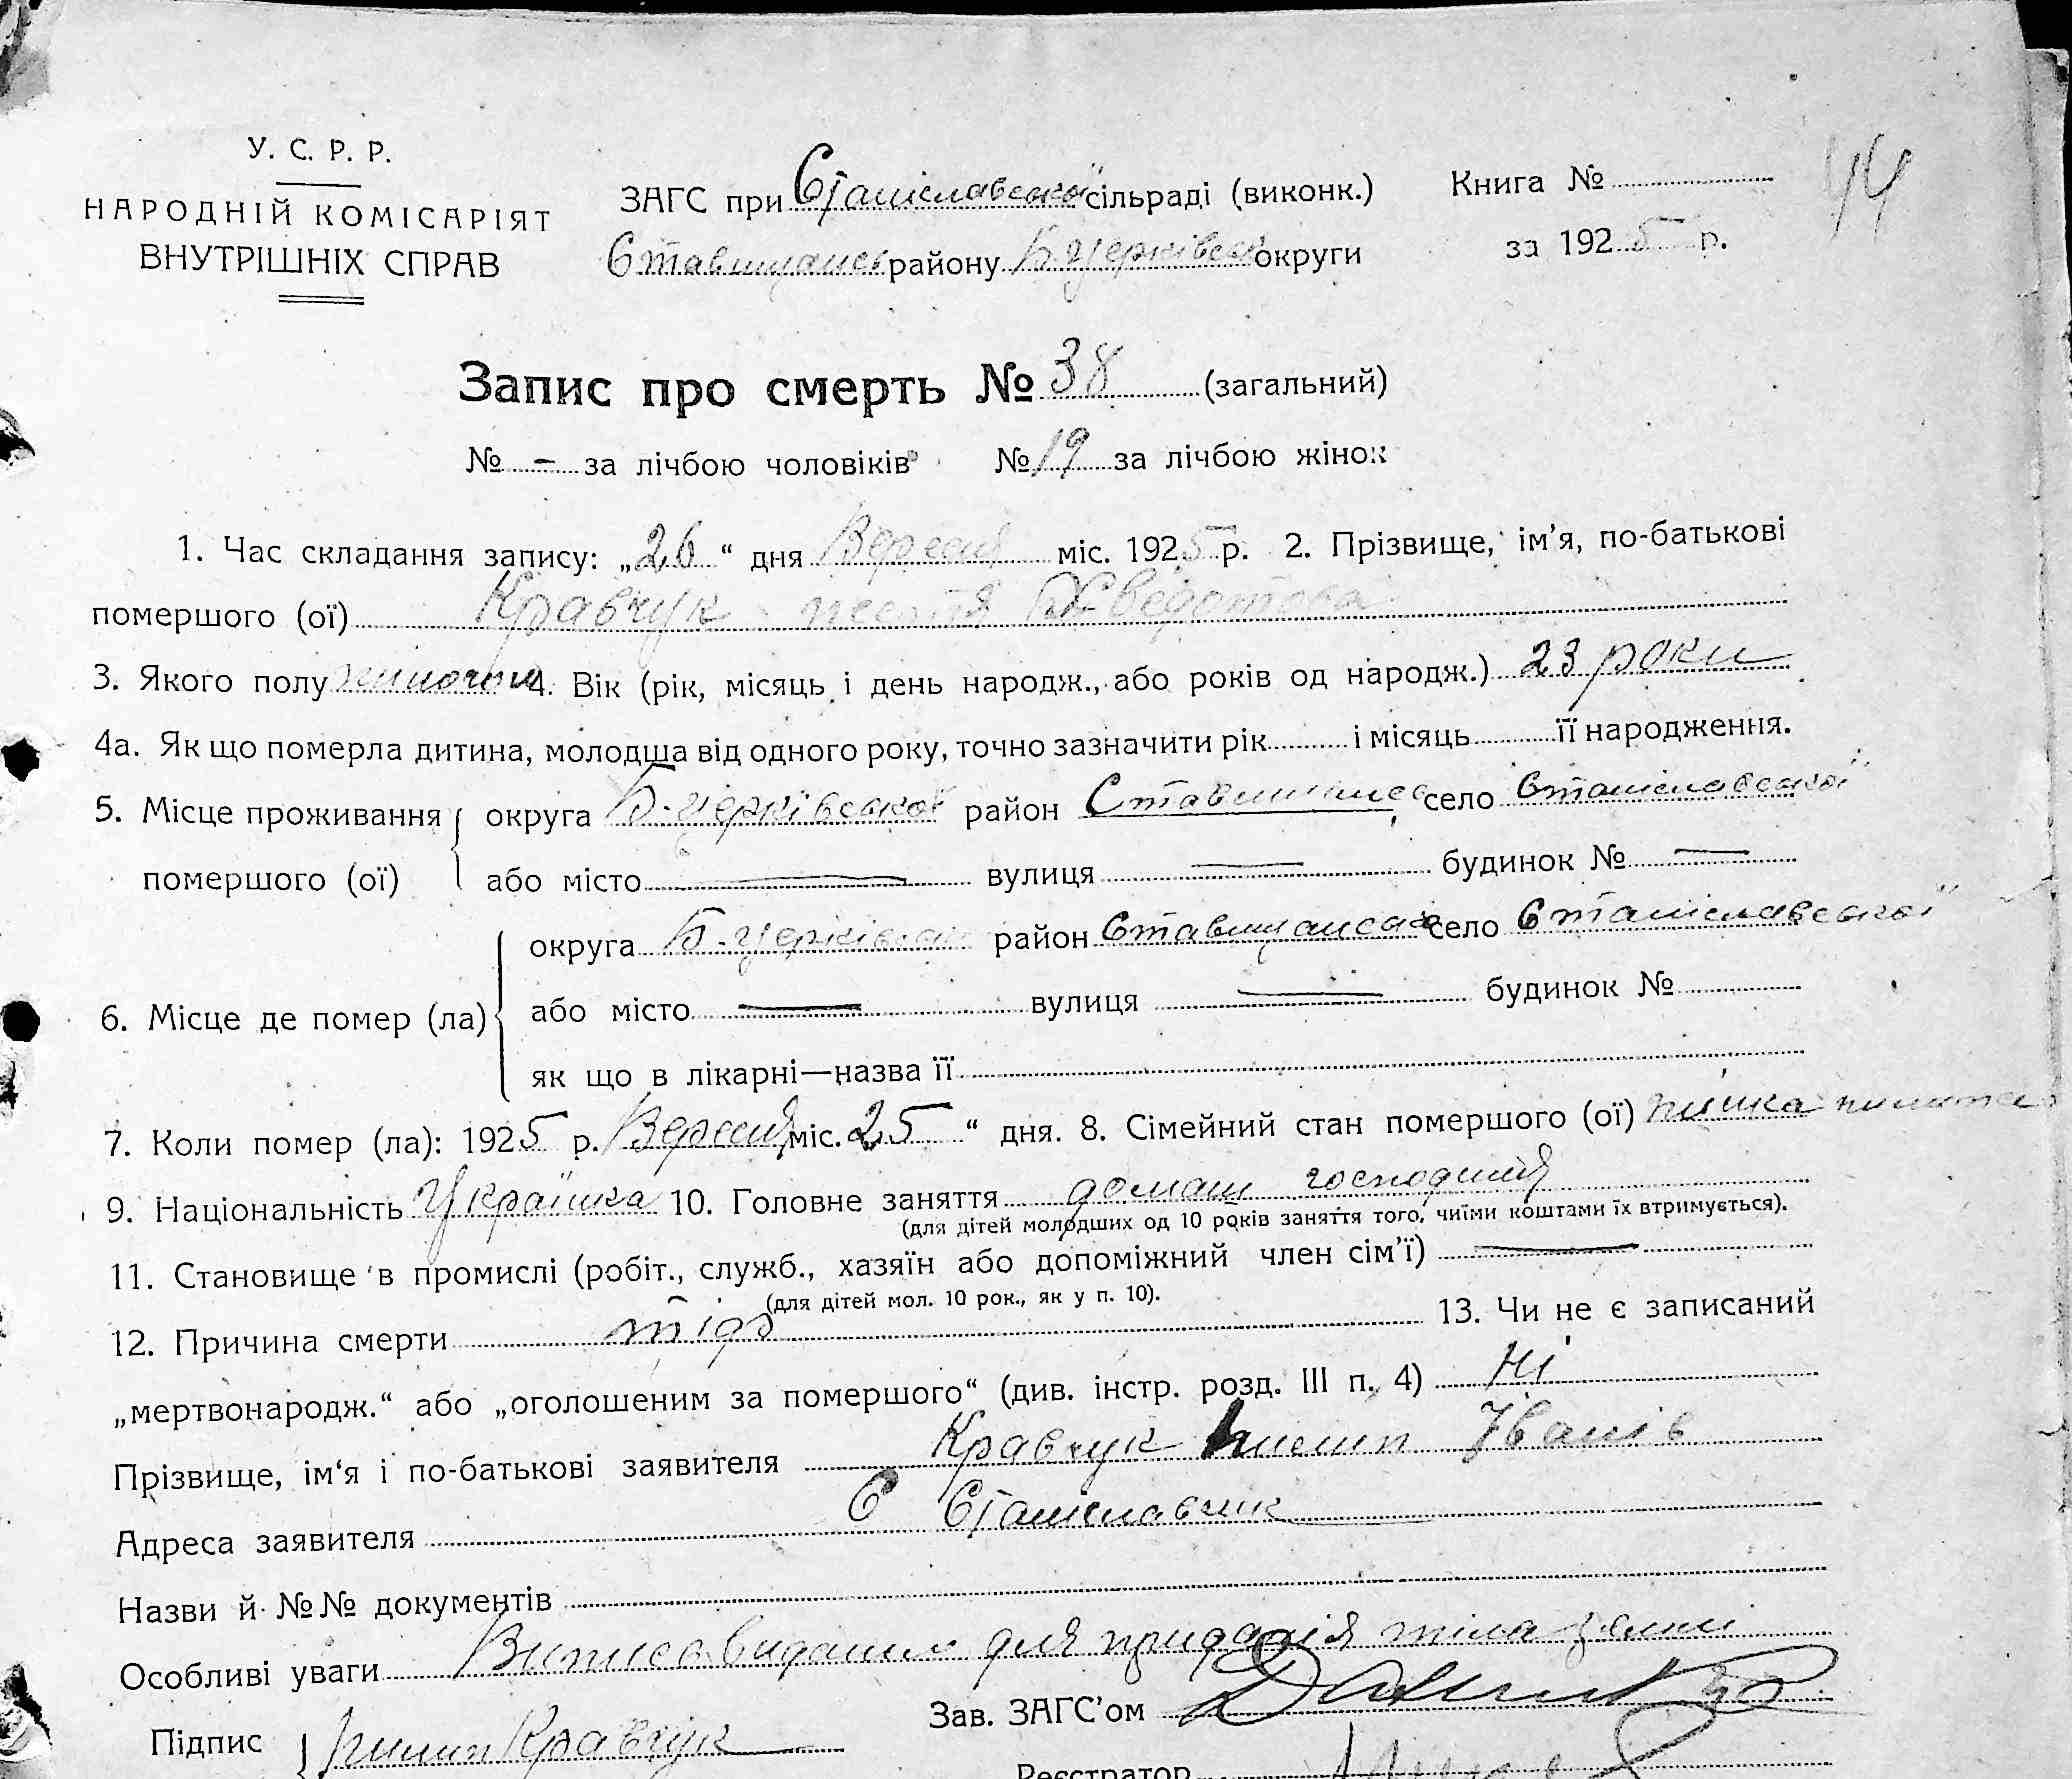 У. С. Р. Р.
НАРОДНІЙ КОМІСАРІЯТ
ВНУТРІШНІХ СПРАВ
ЗАГС при Станіславській сільраді (виконк.)
Ставищанськ району Б. Церківськ округи
Книга №
за 1925 р.
44
Запис про смерть № 38 (загальний)
№ - за лічбою чоловіків № 19 за лічбою жінок
1. Час складання запису: „26“ дня Вересня міс. 1925 р. 2. Прізвище, ім'я, по-батькові
помершого (ої) Кравчук
3. Якого полу жіночої 4. Вік (рік, місяць і день народж., або років од народж.) 23 роки
4а. Як що померла дитина, молодша від одного року, точно зазначити рік і місяць її народження.
5. Місце проживання помершого (ої) округа Б. Церківської район Ставищанс село Станіславської
або місто — вулиця — будинок № —
6. Місце де помер (ла) округа Б. Церківськ район Ставищанськ село Станіславської
або місто — вулиця — будинок №
як що в лікарні—назва її
7. Коли помер (ла): 1925 р. Вересня міс. 25“ дня. 8. Сімейний стан помершого (ої) жінка
9. Національність Українка 10. Головне заняття домаш господиня
(для дітей молодших од 10 років заняття того, чиїми коштами їх втримується).
11. Становище в промислі (робіт., служб., хазяїн або допоміжний член сім'ї) —
(для дітей мол. 10 рок., як у п. 10).
12. Причина смерти 13. Чи не є записаний
„мертвонародж.“ або „оголошеним за помершого“ (див. інстр. розд. III п. 4) Ні
Прізвище, ім'я і по-батькові заявителя Кравчук Пилип Іванів
Адреса заявителя С Станіславчик
Назви й №№ документів
Особливі уваги Випис видано для придання тіла землі
Підпис Пилип Кравчук
Зав. ЗАГС'ом
Реєстратор